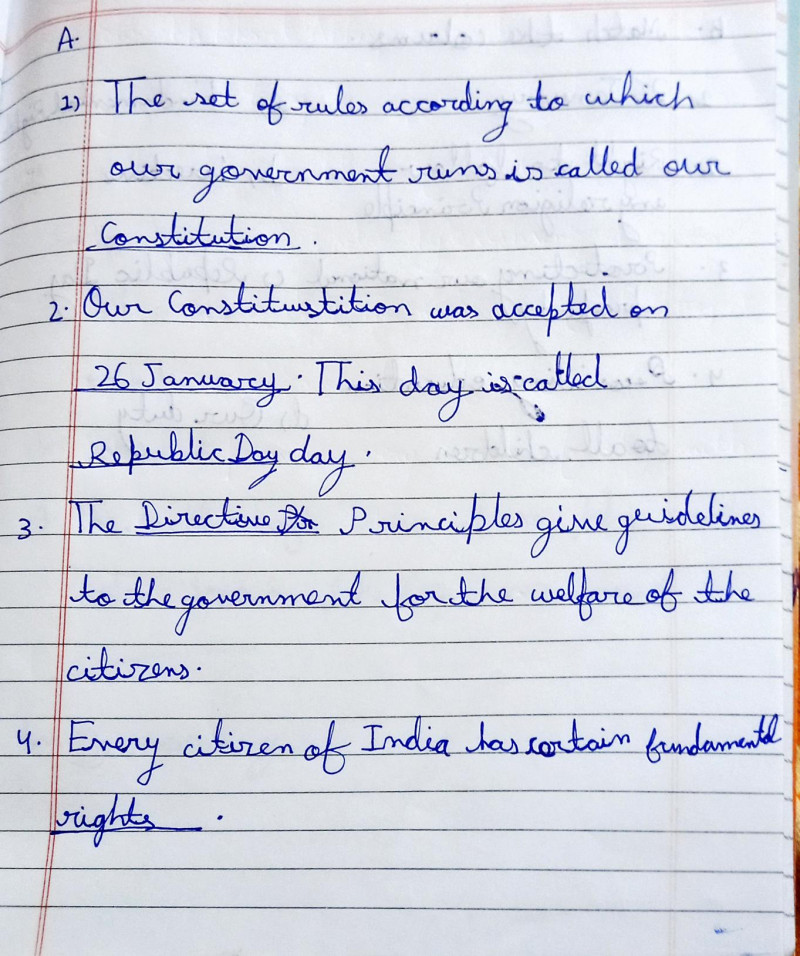 A.
1) The set of rules according to which
our government runs is called our
Constitution.
2. Our Constitustition was accepted on
26 January. This day is called
Republic Day day.
3. The Directive Principles give guidelines
to the government for the welfare of the
citizens.
4. Every citizen of India has certain fundamental
rights.